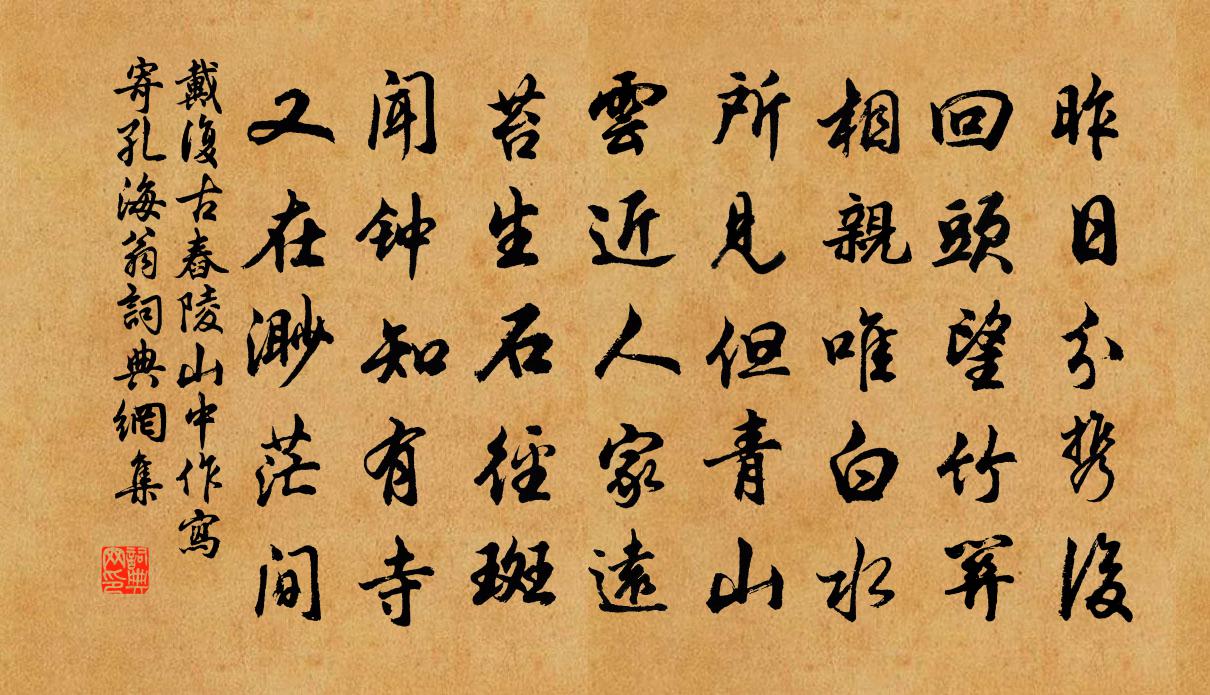 昨日分携後
回頭望竹關
相親唯白水
所見但青山
雲近人家遠
苔生石徑斑
聞钟知有寺
又在渺茫間
戴復古舂陵山中作寫
寄孔海翁詞典網集
詞典
网印